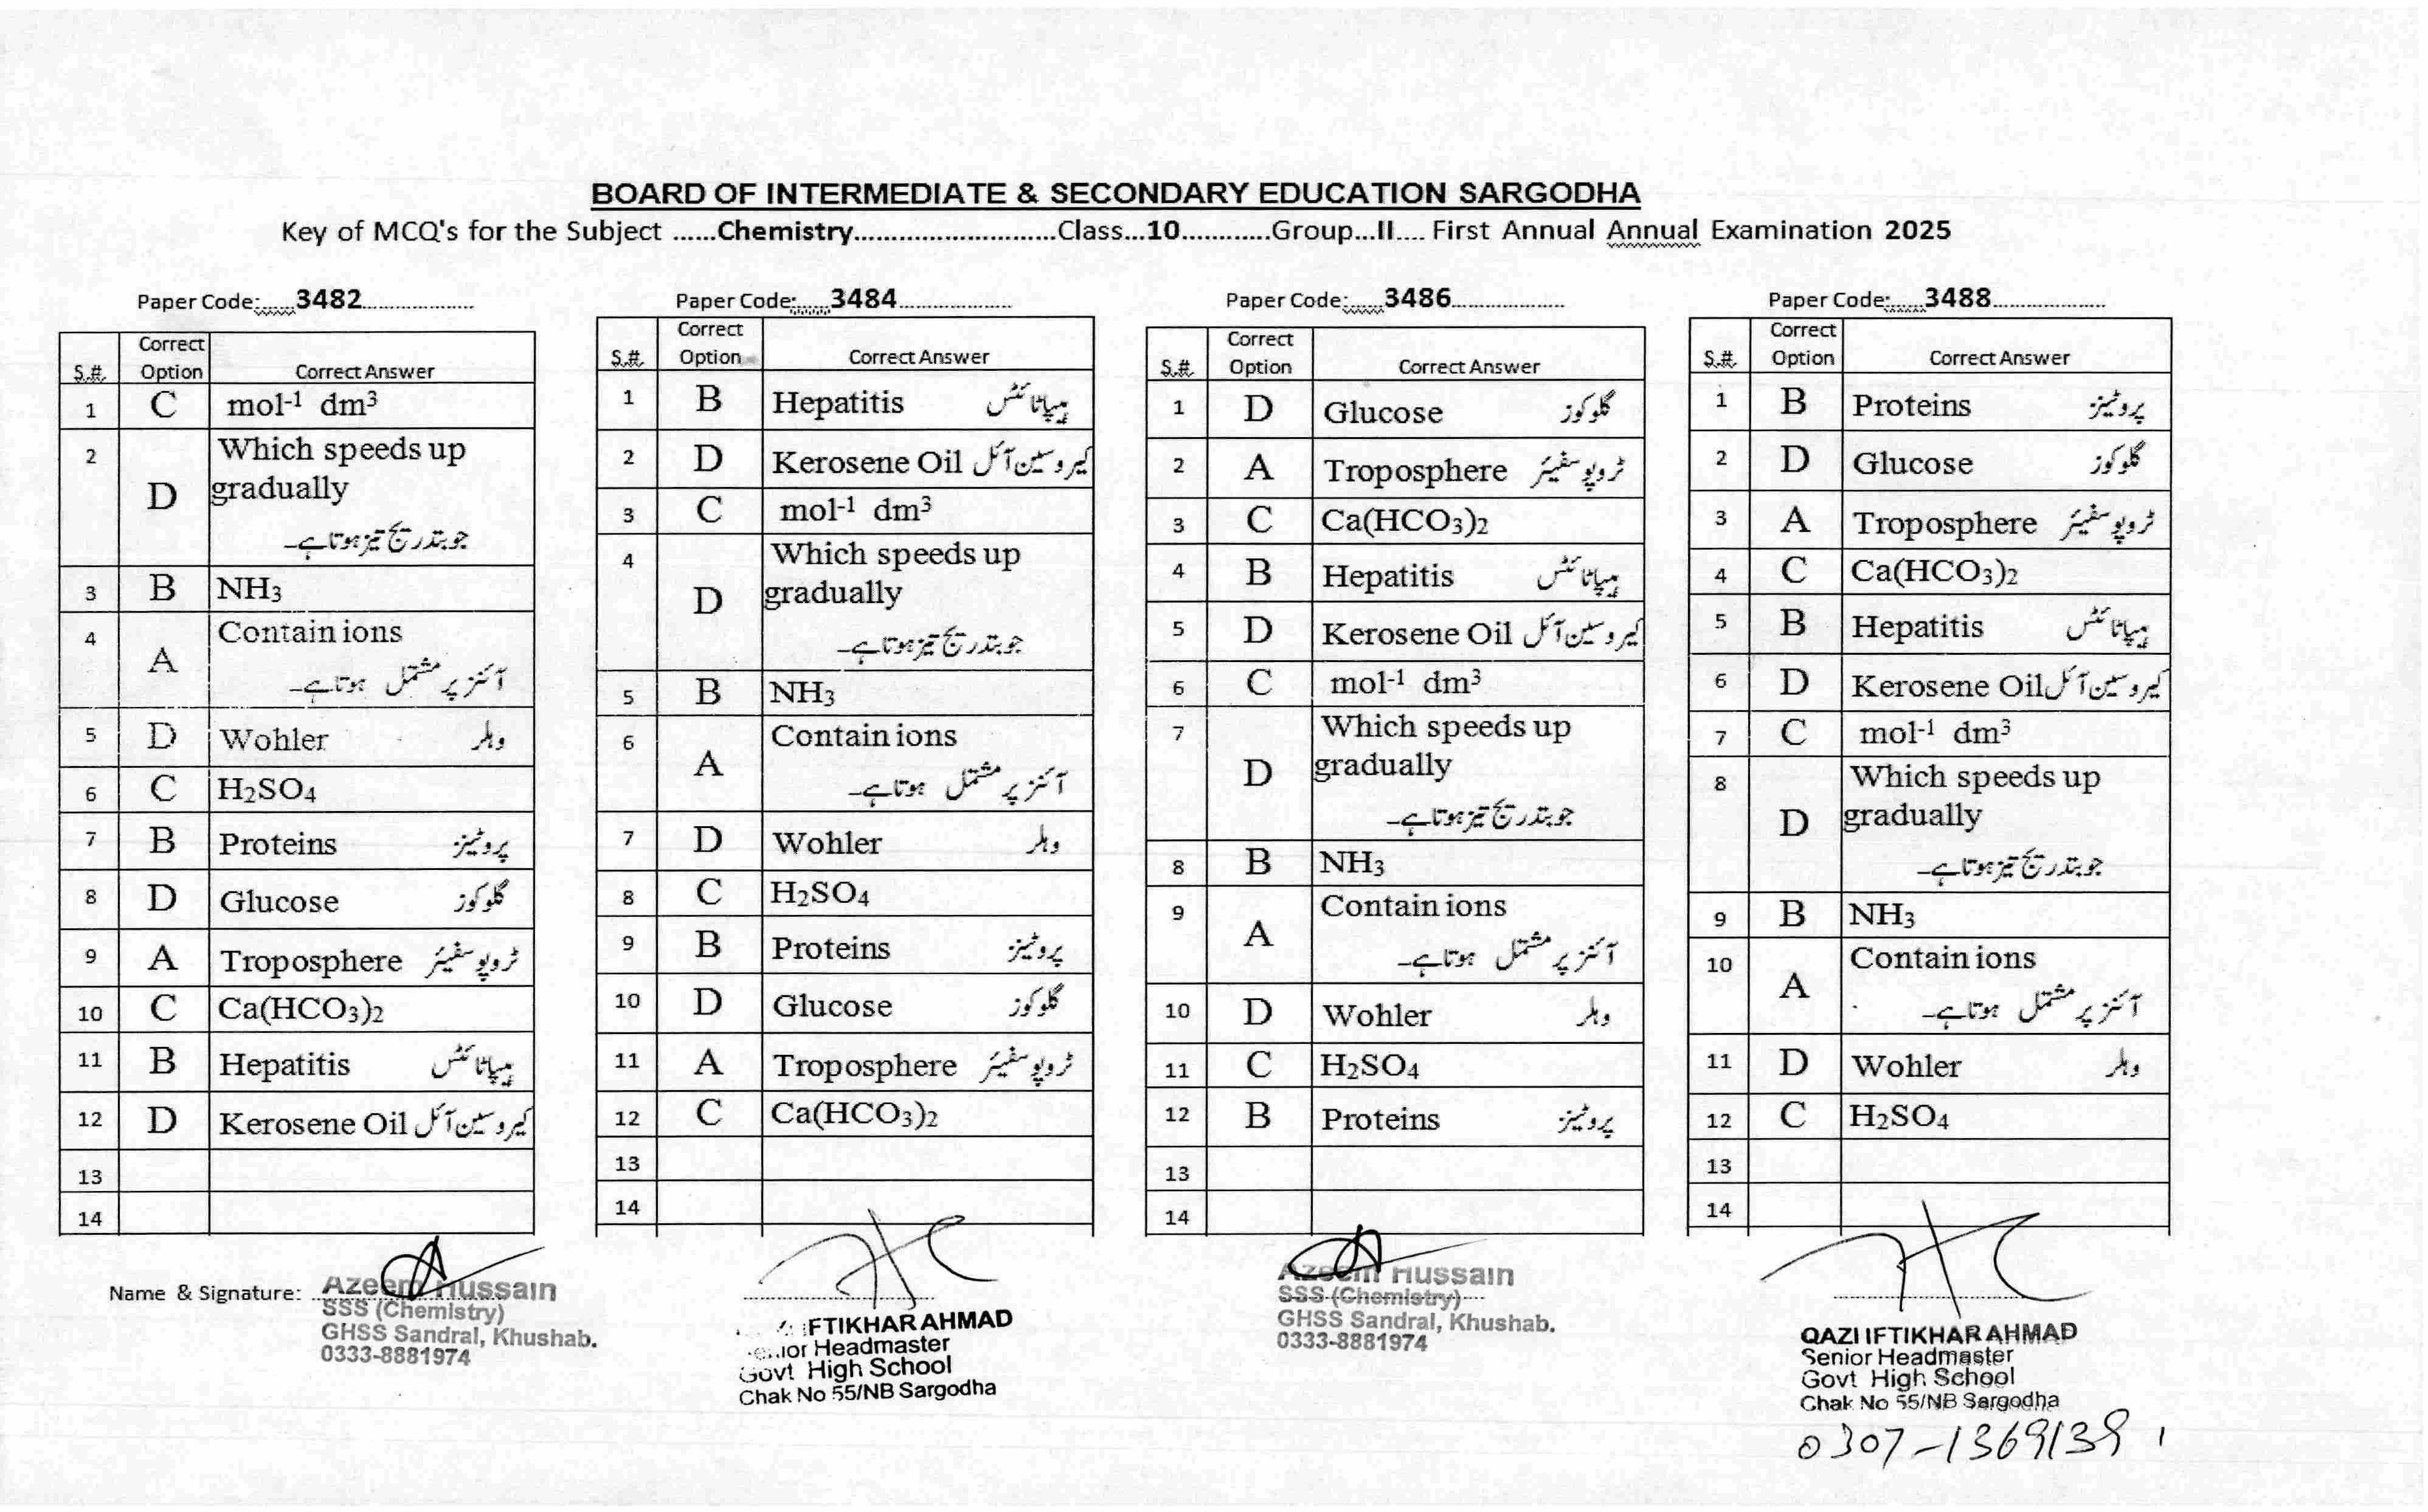 BOARD OF INTERMEDIATE & SECONDARY EDUCATION SARGODHA
Key of MCQ's for the Subject ......Chemistry............................Class...10............Group...II.... First Annual Annual Examination 2025
Paper Code:......3482....................
S.#. Correct Option Correct Answer
1 C mol⁻¹ dm³
2 D Which speeds up
gradually
جو بتدریج تیز ہوتا ہے۔
3 B NH₃
4 A Contain ions
آئنز پر مشتمل ہوتا ہے۔
5 D Wohler وہلر
6 C H₂SO₄
7 B Proteins پروٹینز
8 D Glucose گلوکوز
9 A Troposphere ٹروپوسفیئر
10 C Ca(HCO₃)₂
11 B Hepatitis ہیپاٹائٹس
12 D Kerosene Oil کیروسین آئل
13
14
Paper Code:......3484....................
S.#. Correct Option Correct Answer
1 B Hepatitis ہیپاٹائٹس
2 D Kerosene Oil کیروسین آئل
3 C mol⁻¹ dm³
4 D Which speeds up
gradually
جو بتدریج تیز ہوتا ہے۔
5 B NH₃
6 A Contain ions
آئنز پر مشتمل ہوتا ہے۔
7 D Wohler وہلر
8 C H₂SO₄
9 B Proteins پروٹینز
10 D Glucose گلوکوز
11 A Troposphere ٹروپوسفیئر
12 C Ca(HCO₃)₂
13
14
Paper Code:......3486....................
S.#. Correct Option Correct Answer
1 D Glucose گلوکوز
2 A Troposphere ٹروپوسفیئر
3 C Ca(HCO₃)₂
4 B Hepatitis ہیپاٹائٹس
5 D Kerosene Oil کیروسین آئل
6 C mol⁻¹ dm³
7 D Which speeds up
gradually
جو بتدریج تیز ہوتا ہے۔
8 B NH₃
9 A Contain ions
آئنز پر مشتمل ہوتا ہے۔
10 D Wohler وہلر
11 C H₂SO₄
12 B Proteins پروٹینز
13
14
Paper Code:......3488....................
S.#. Correct Option Correct Answer
1 B Proteins پروٹینز
2 D Glucose گلوکوز
3 A Troposphere ٹروپوسفیئر
4 C Ca(HCO₃)₂
5 B Hepatitis ہیپاٹائٹس
6 D Kerosene Oil کیروسین آئل
7 C mol⁻¹ dm³
8 D Which speeds up
gradually
جو بتدریج تیز ہوتا ہے۔
9 B NH₃
10 A Contain ions
آئنز پر مشتمل ہوتا ہے۔
11 D Wohler وہلر
12 C H₂SO₄
13
14
Name & Signature: Azeem Hussain
SSS (Chemistry)
GHSS Sandral, Khushab.
0333-8881974
IFTIKHAR AHMAD
Senior Headmaster
Govt High School
Chak No 55/NB Sargodha
Azeem Hussain
SSS (Chemistry)
GHSS Sandral, Khushab.
0333-8881974
QAZI IFTIKHAR AHMAD
Senior Headmaster
Govt High School
Chak No 55/NB Sargodha